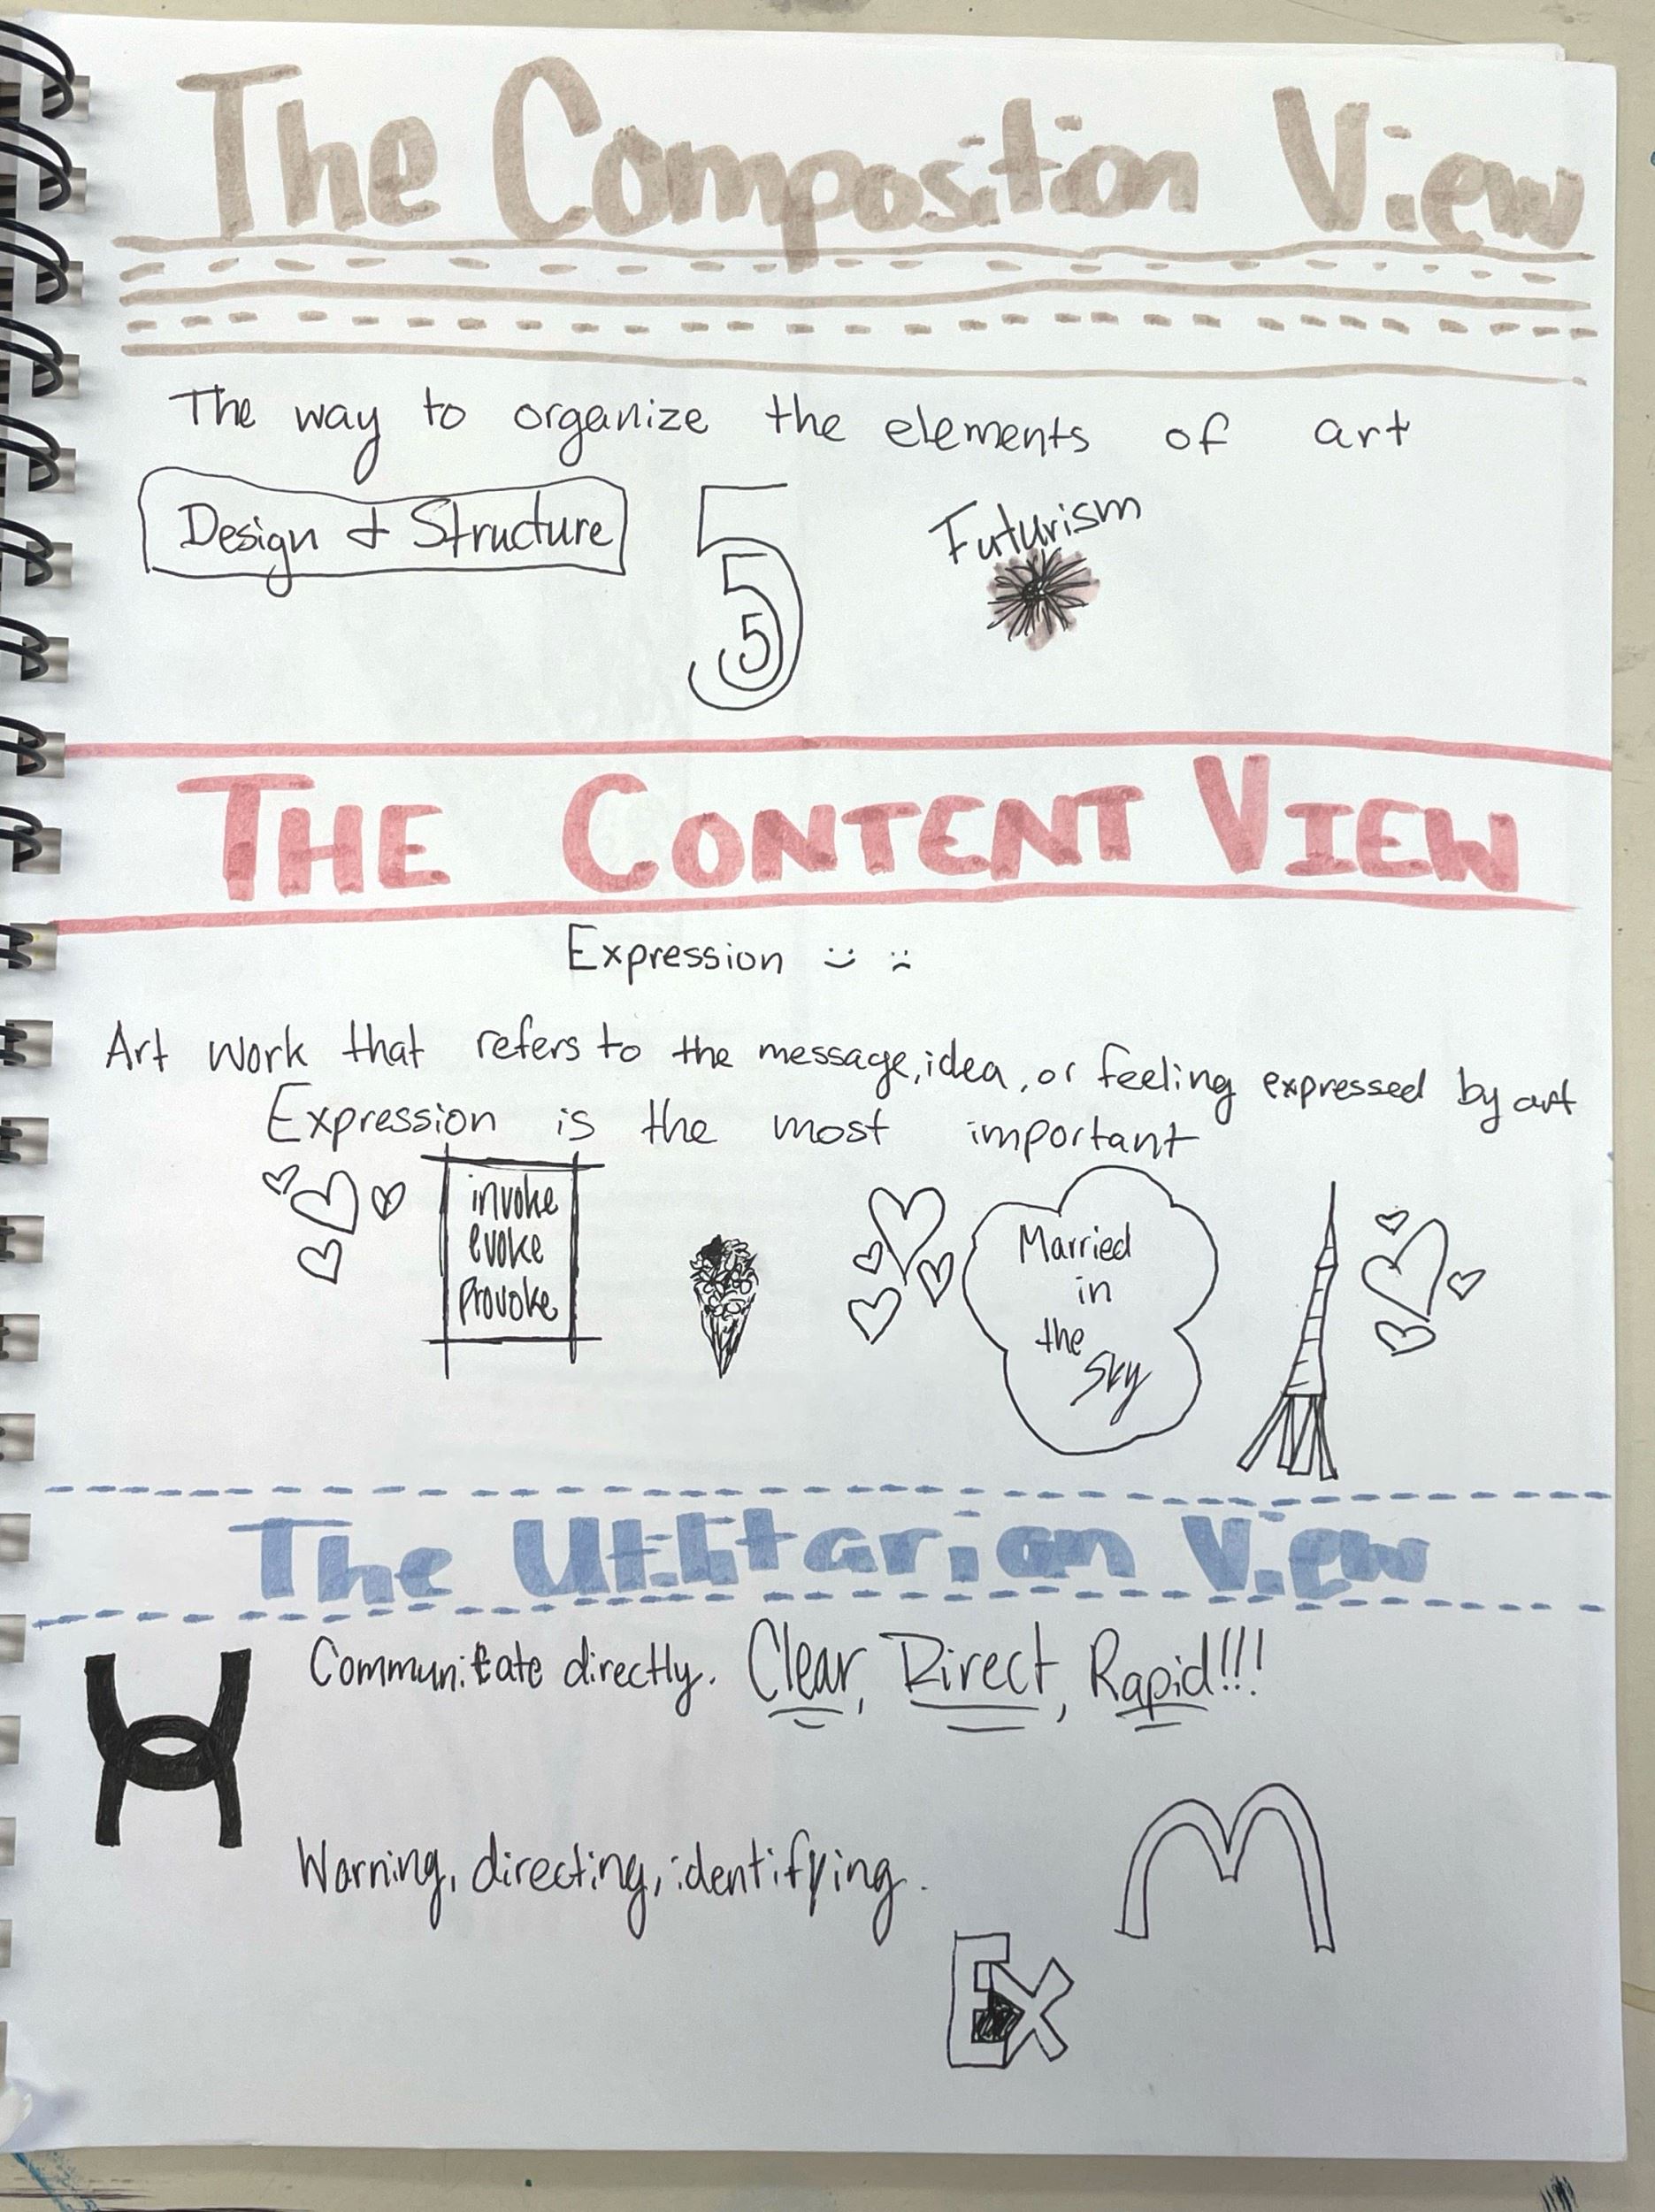 The Composition View
The way to organize the elements of art
Design & Structure
5
5
5
Futurism
THE CONTENT VIEW
Expression :) :(
Art work that refers to the message, idea, or feeling expressed by art
Expression is the most important
invoke
evoke
Provoke
Married
in
the
Sky
The Utilitarian View
Communicate directly. Clear, Direct, Rapid!!!
Warning, directing, identifying.
Ex